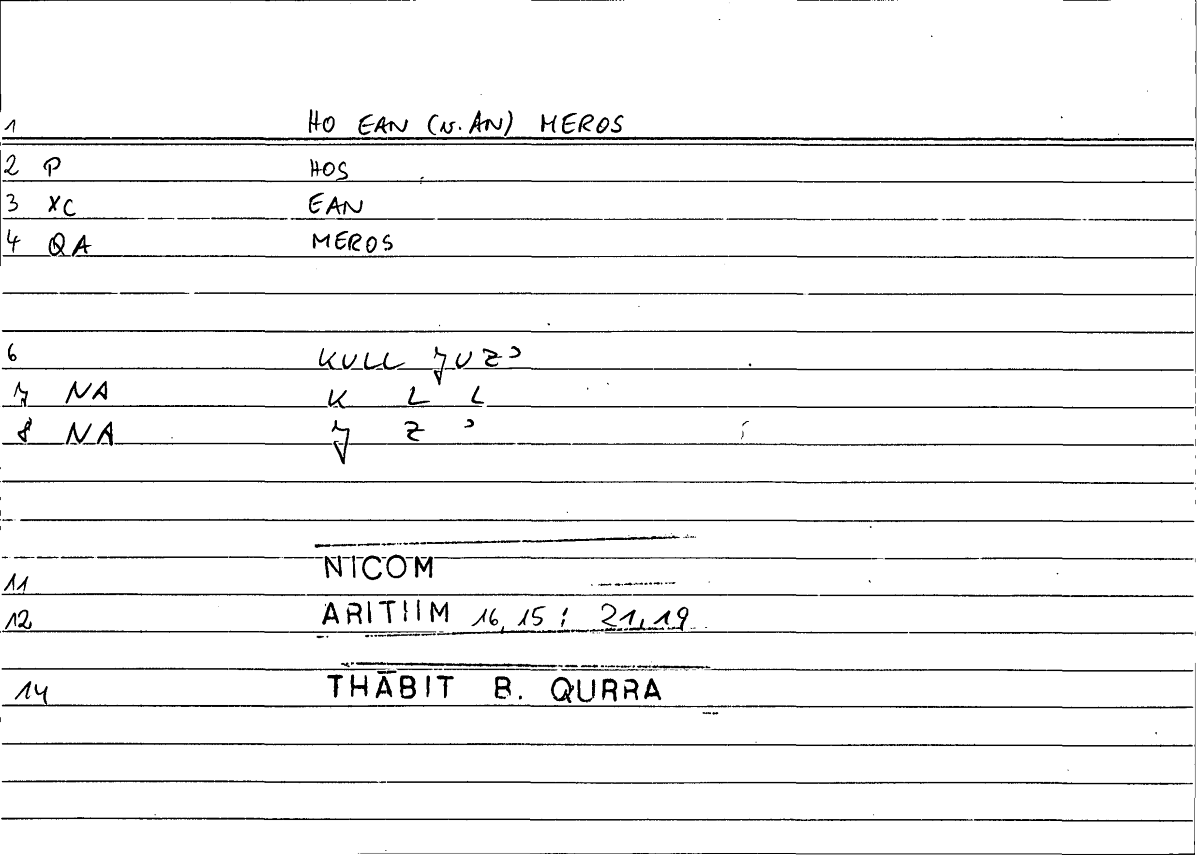 1 HO EAN (s. AN) MEROS
2 P HOS
3 XC EAN
4 QA MEROS
6 KULL JUZʾ
7 NA K L L
8 NA J Z ʾ
11 NICOM
12 ARITHM 16,15 ; 21,19
14 THĀBIT B. QURRA